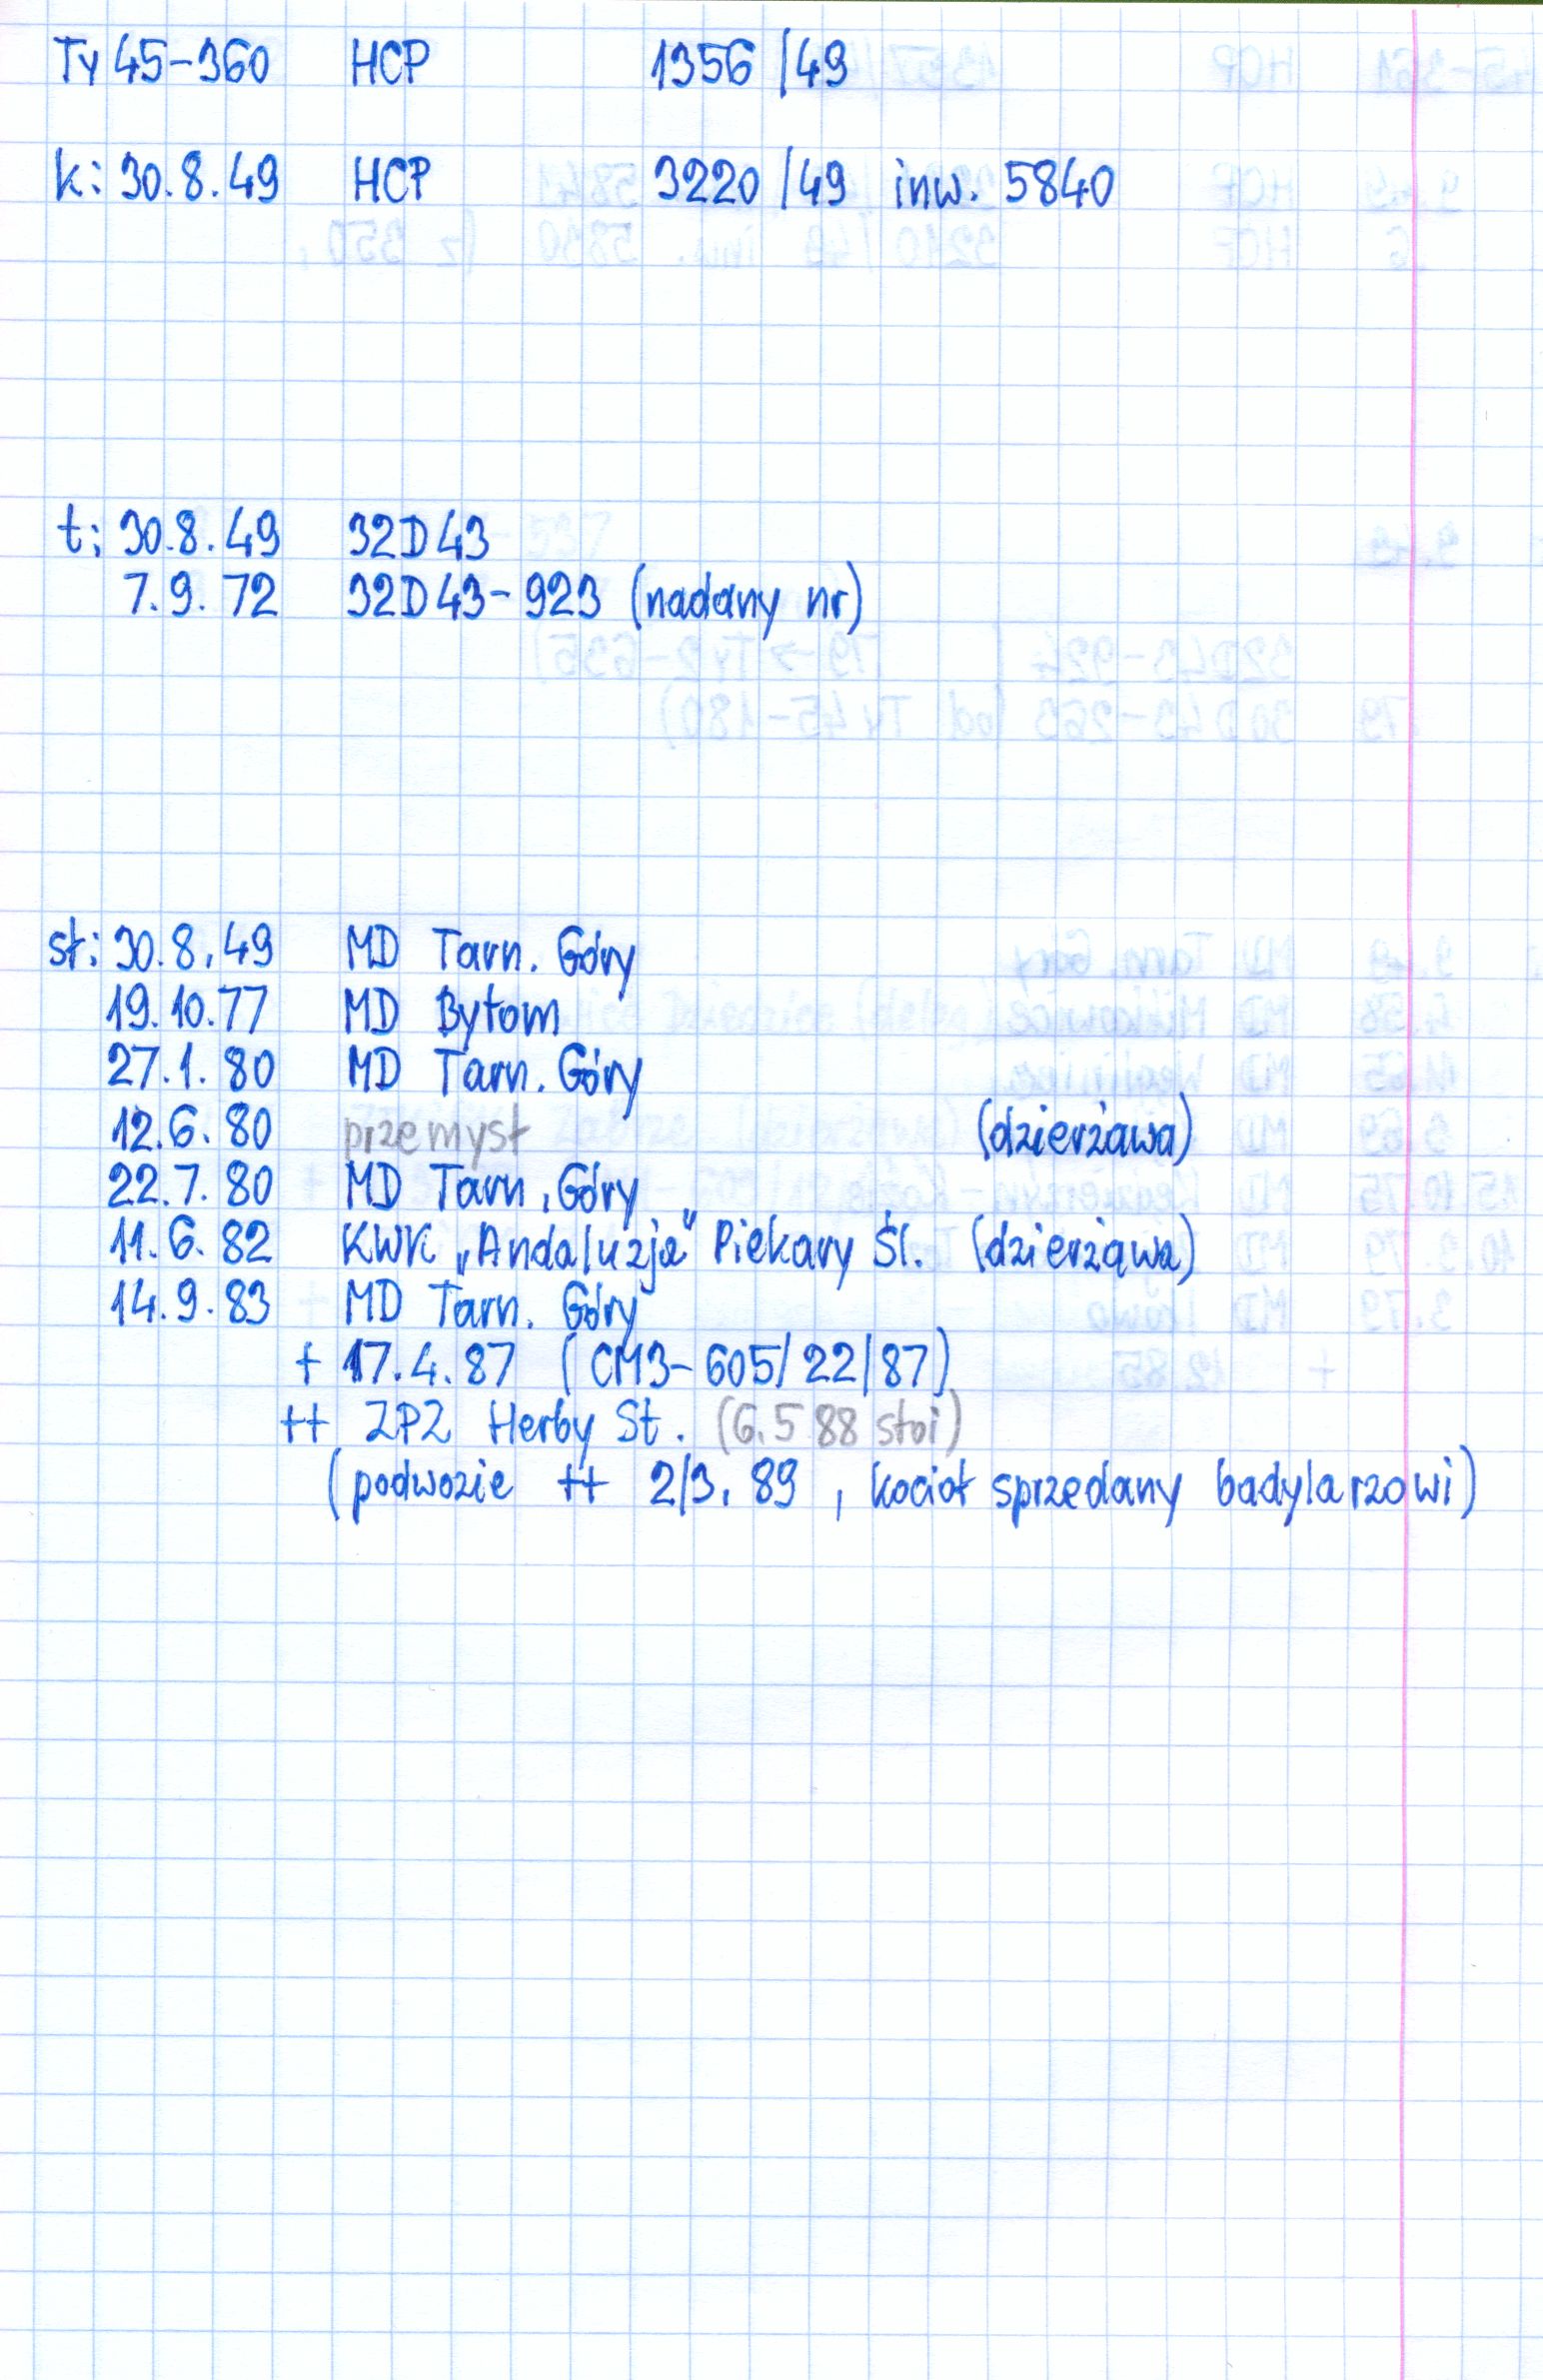 Ty 45-360 HCP 1356/49
k: 30.8.49 HCP 3220/49 inw. 5840
t: 30.8.49 32D43
7.9.72 32D43-923 (nadany nr)
st: 30.8.49 MD Tarn. Góry
19.10.77 MD Bytom
27.1.80 MD Tarn. Góry
12.6.80 przemysł (dzierżawa)
22.7.80 MD Tarn. Góry
11.6.82 KWK „Andaluzja" Piekary Śl. (dzierżawa)
14.9.83 MD Tarn. Góry
+ 17.4.87 (CM3-605/22/87)
++ ZPZ Herby St. (6.5 88 stoi)
(podwozie ++ 2/3.89, kocioł sprzedany badylarzowi)